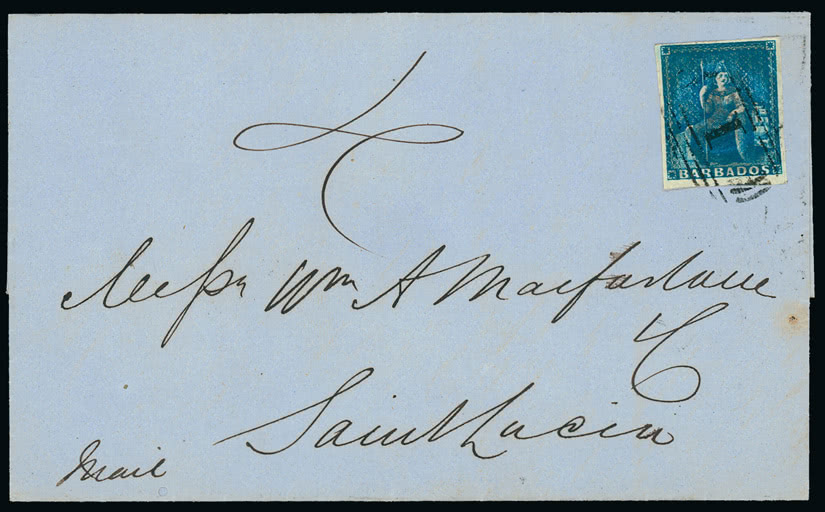 BARBADOS
1
Messrs Wm A Macfarlane
Co
Saint Lucia
Mail